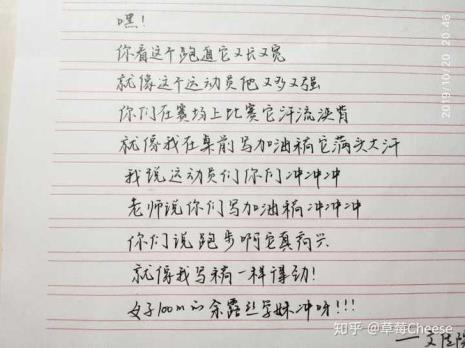 嘿！
你看这个跑道它又长又宽
就像这个运动员他又多又强
你们在赛场上比赛它汗流浃背
就像我在桌前写加油稿它满头大汗
我说运动员们你们冲冲冲
老师说你们写加油稿冲冲冲
你们说跑步啊它真高兴
就像我写稿一样得劲！
女子100m的余露丝学妹冲呀！！！
2019/10/20 20:46
知乎 @草莓Cheese